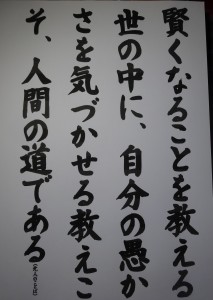 賢くなることを教える
世の中に、自分の愚か
さを気づかせる教えこ
そ、人間の道である